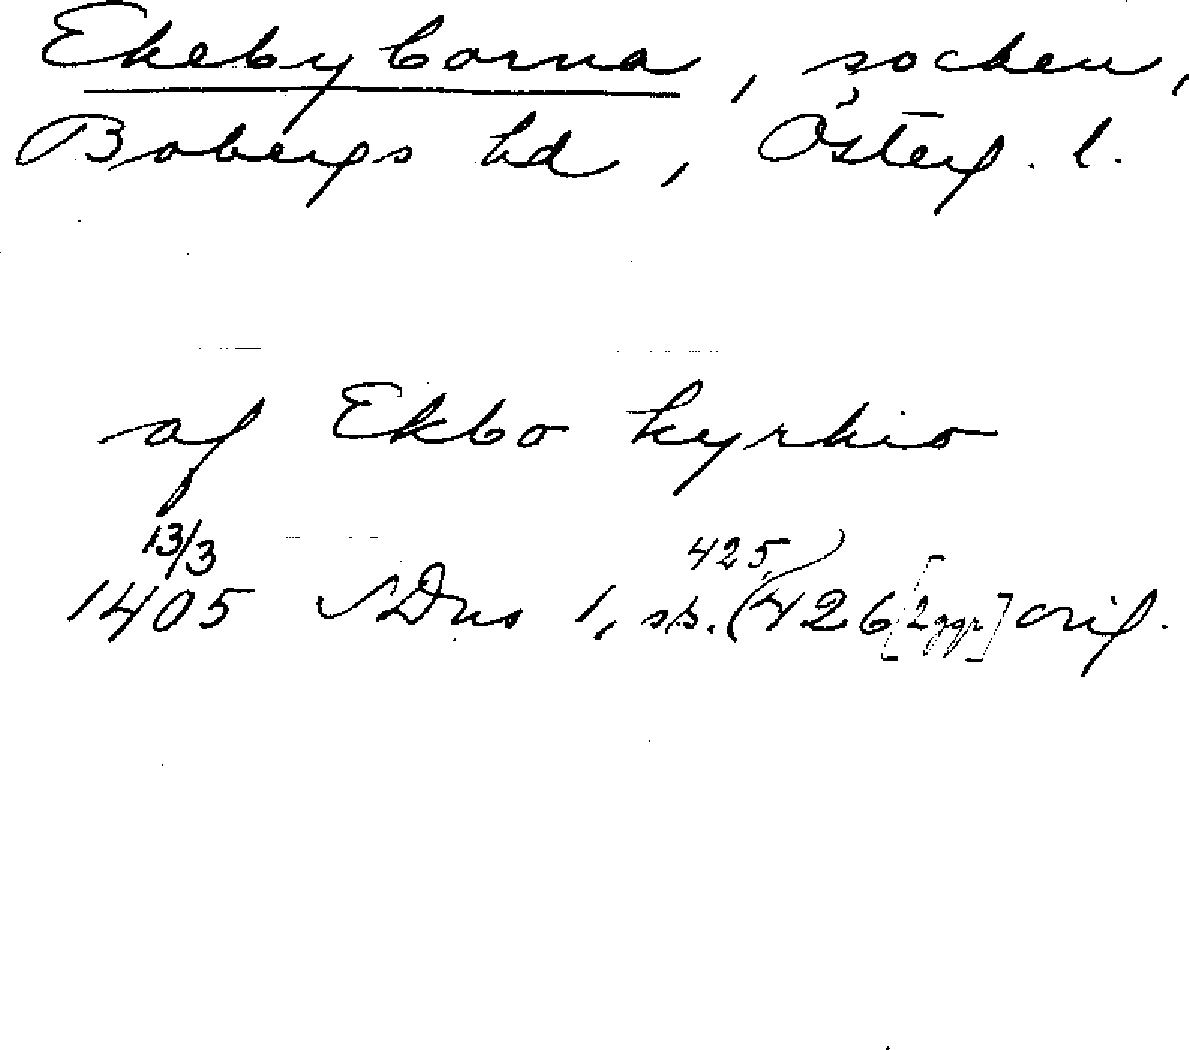 Ekebyborna, socken,
Bobergs hd, Österg. l.
af Ekbo kyrkio
13/3 425,
1405 SDns 1, sp. (426 [2 ggr] orig.